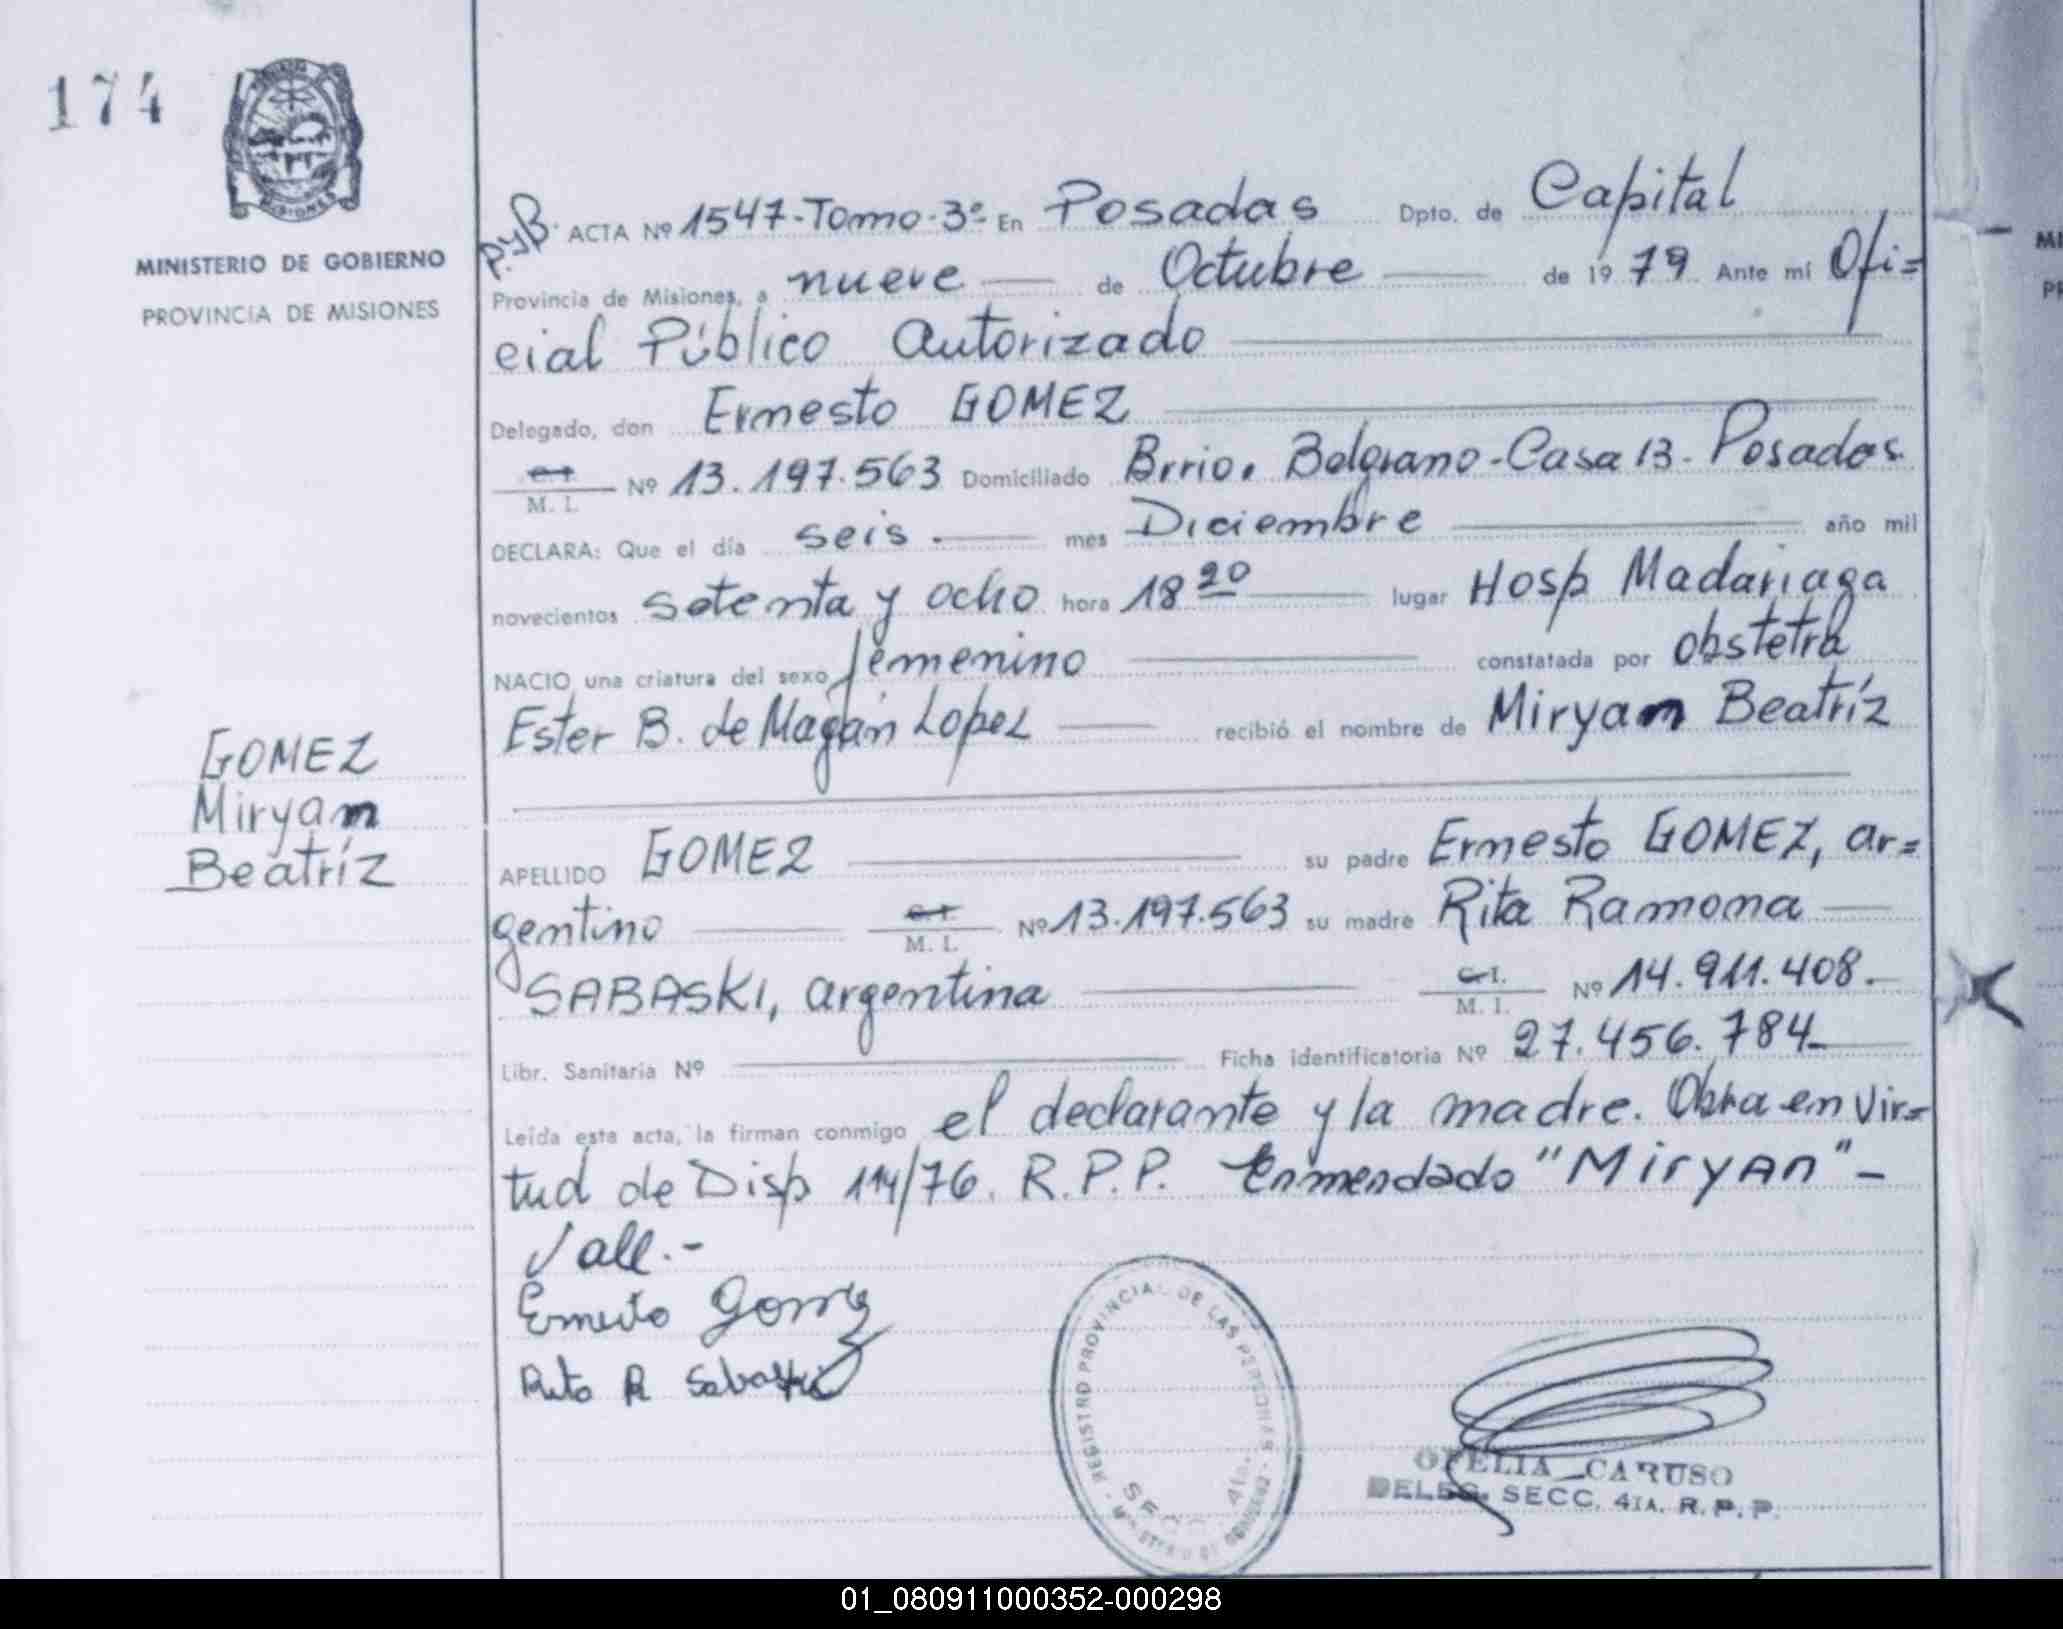 174
MINISTERIO DE GOBIERNO
PROVINCIA DE MISIONES
P.yB. ACTA Nº 1547-Tomo-3º En Posadas Dpto. de Capital
Provincia de Misiones, a nueve de Octubre de 1979 Ante mí Ofi=
cial Público Autorizado
Delegado, don Ernesto GOMEZ
C. I.
M. I. Nº 13.197.563 Domiciliado Brrio. Belgrano-Casa 13-Posadas
DECLARA: Que el día seis.- mes Diciembre año mil
novecientos setenta y ocho hora 18 20 lugar Hosp Madariaga
NACIO una criatura del sexo femenino constatada por obstetra
Ester B. de Magán Lopez recibió el nombre de Miryam Beatríz
GOMEZ
Miryam
Beatríz
APELLIDO GOMEZ su padre Ernesto GOMEZ, ar=
gentino C. I.
M. I. Nº 13.197.563 su madre Rita Ramona
SABASKI, argentina C. I.
M. I. Nº 14.911.408.-
Libr. Sanitaria Nº Ficha identificatoria Nº 27.456.784-
Leída esta acta, la firman conmigo el declarante y la madre. Obra en vir=
tud de Disp 114/76. R.P.P. Enmendado "MiryAn"-
Vall.-
Ernesto Gomez
Rita R Sabaski
REGISTRO PROVINCIAL DE LAS PERSONAS
MINISTERIO DE GOBIERNO
SECC. 4ta.
OFELIA CARUSO
DELEG. SECC. 4TA. R. P. P.
01_080911000352-000298